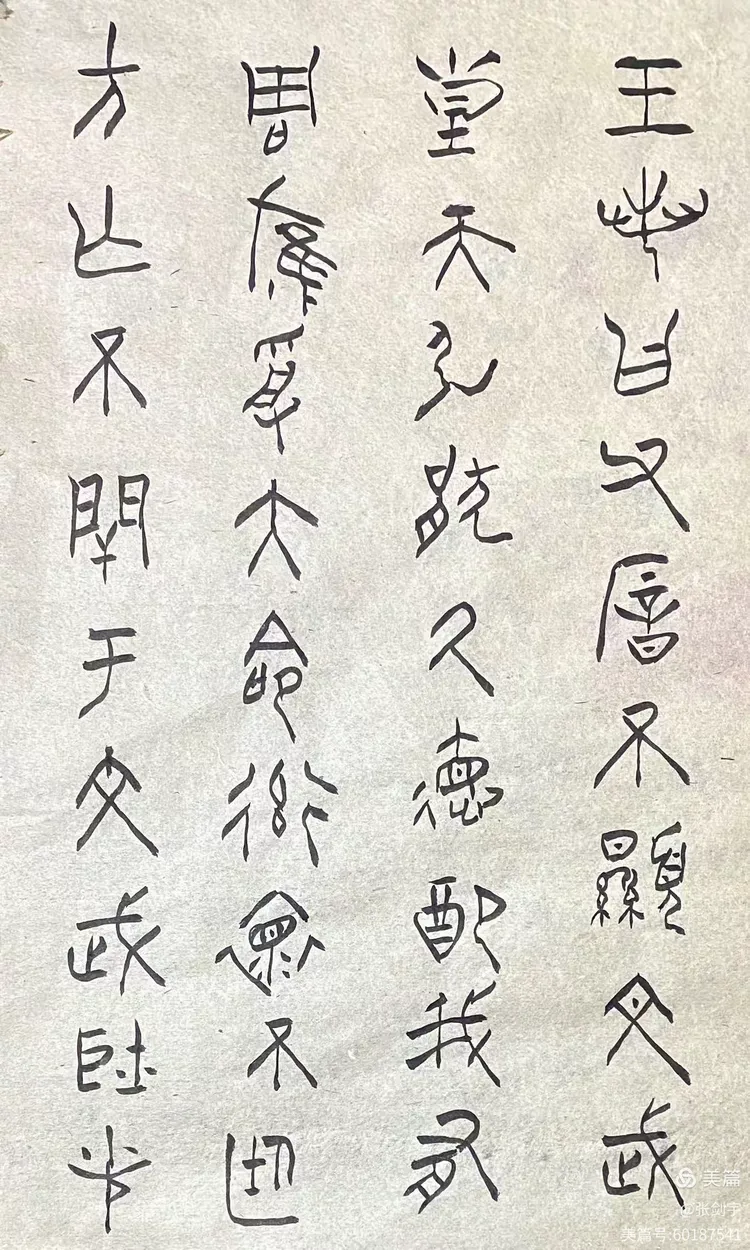 王若曰父不顯文武
皇天弘猒厥德配我有
周膺受大命率懷不廷
方亡不閈于文武耿光
美篇
@张剑宇
美篇号:60187541